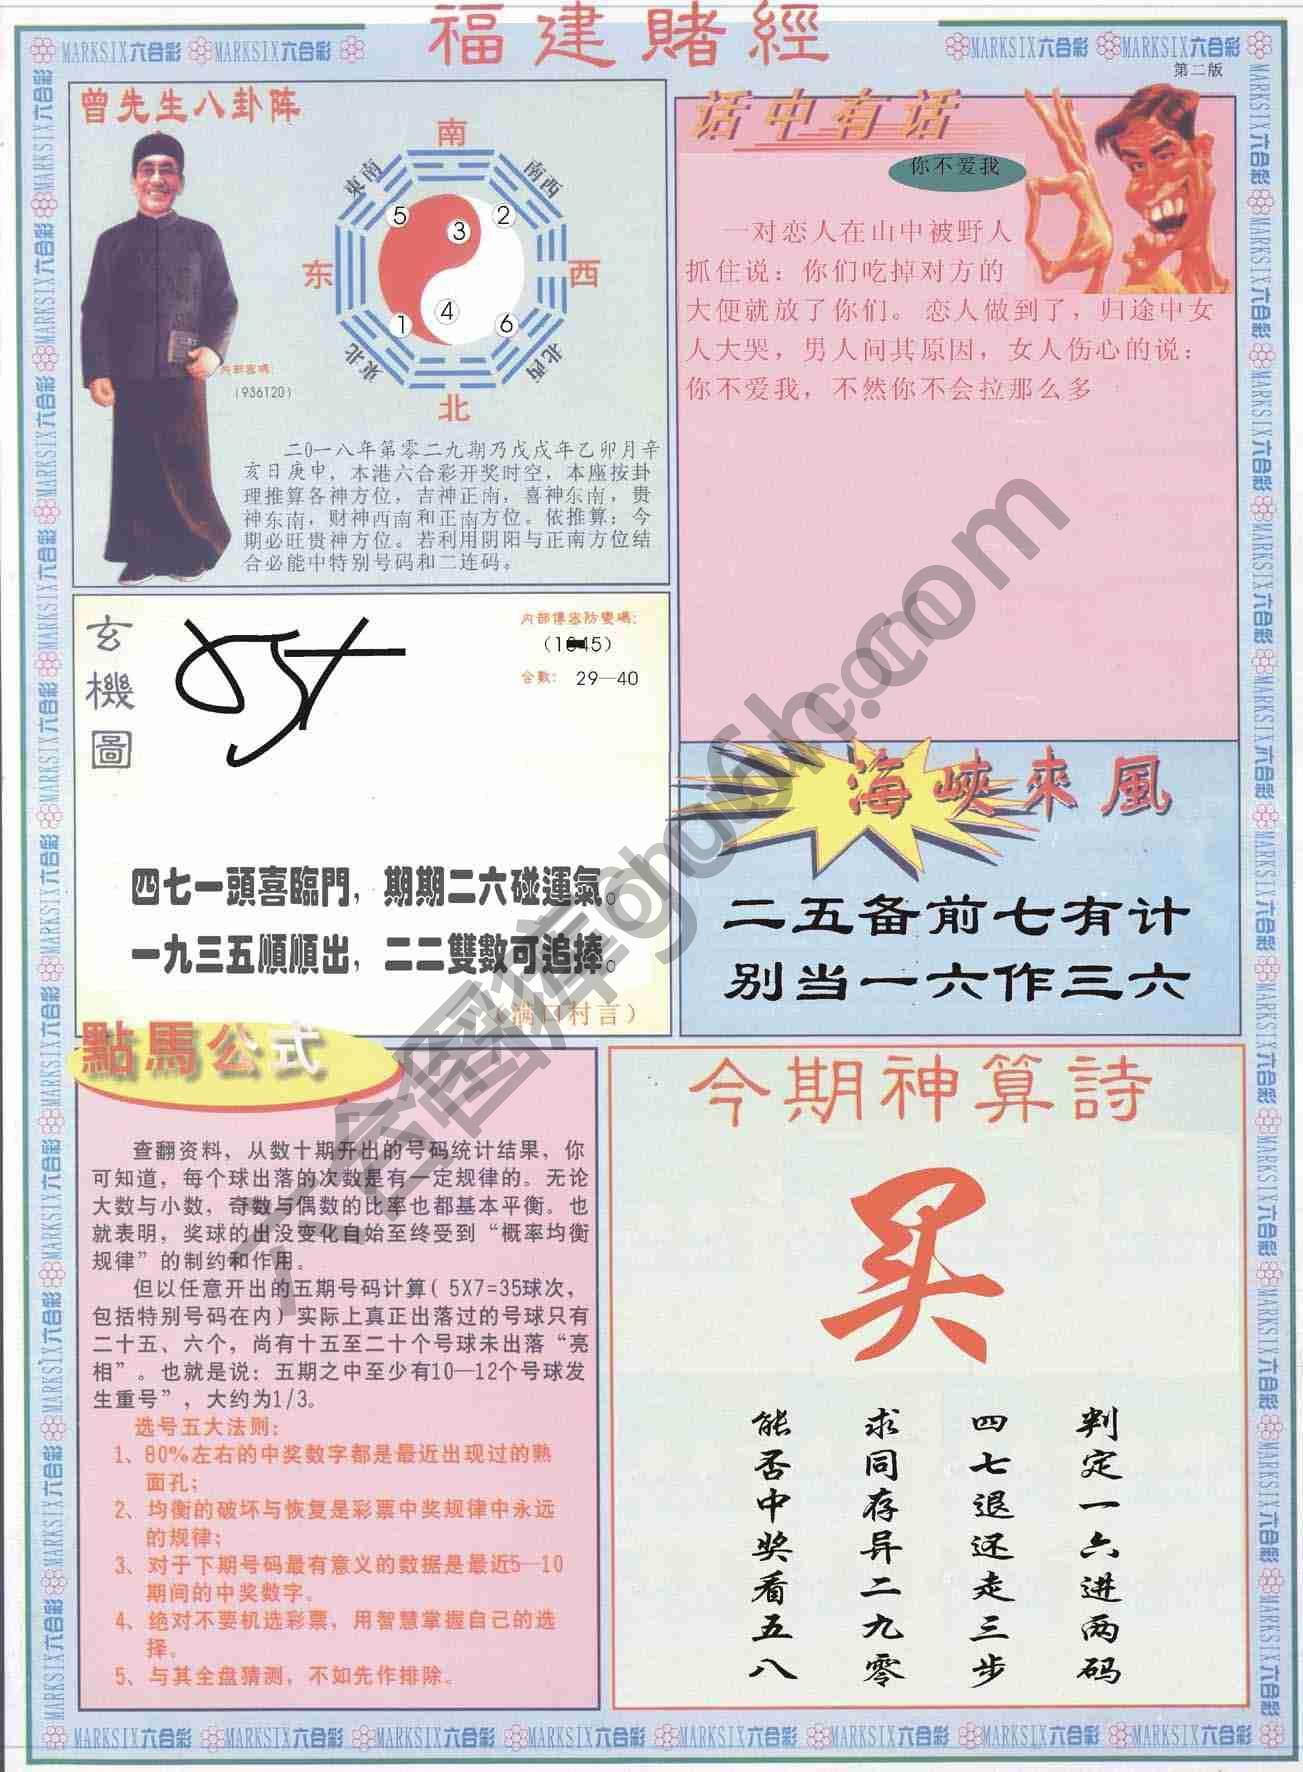 福建賭經
MARKSIX六合彩 MARKSIX六合彩
MARKSIX六合彩 MARKSIX六合彩
第二版
曾先生八卦阵
南
東南
南西
5
3
2
东
西
1
4
6
東北
北西
北
内部密碼:
(936120)
二0一八年第零二九期乃戊戌年乙卯月辛
亥日庚申，本港六合彩开奖时空，本座按卦
理推算各神方位，吉神正南，喜神东南，贵
神东南，财神西南和正南方位。依推算：今
期必旺贵神方位。若利用阴阳与正南方位结
合必能中特别号码和二连码。
话中有话
你不爱我
一对恋人在山中被野人
抓住说：你们吃掉对方的
大便就放了你们。恋人做到了，归途中女
人大哭，男人问其原因，女人伤心的说：
你不爱我，不然你不会拉那么多
玄機圖
内部傳密防變碼:
合數: 29—40
四七一頭喜臨門，期期二六碰運氣。
一九三五順順出，二二雙數可追捧。
（满口村言）
海峽來風
二五备前七有计
别当一六作三六
點馬公式
查翻资料，从数十期开出的号码统计结果，你
可知道，每个球出落的次数是有一定规律的。无论
大数与小数，奇数与偶数的比率也都基本平衡。也
就表明，奖球的出没变化自始至终受到“概率均衡
规律”的制约和作用。
但以任意开出的五期号码计算( 5X7=35球次，
包括特别号码在内）实际上真正出落过的号球只有
二十五、六个，尚有十五至二十个号球未出落“亮
相”。也就是说：五期之中至少有10—12个号球发
生重号”，大约为1/3。
选号五大法则：
1、80%左右的中奖数字都是最近出现过的熟
面孔；
2、均衡的破坏与恢复是彩票中奖规律中永远
的规律；
3、对于下期号码最有意义的数据是最近5—10
期间的中奖数字。
4、绝对不要机选彩票，用智慧掌握自己的选
择。
5、与其全盘猜测，不如先作排除。
今期神算詩
买
判定一六进两码
四七退还走三步
求同存异二九零
能否中奖看五八
MARKSIX六合彩 MARKSIX六合彩 MARKSIX六合彩 MARKSIX六合彩 MARKSIX六合彩 MARKSIX六合彩 MARKSIX六合彩 MARKSIX六合彩